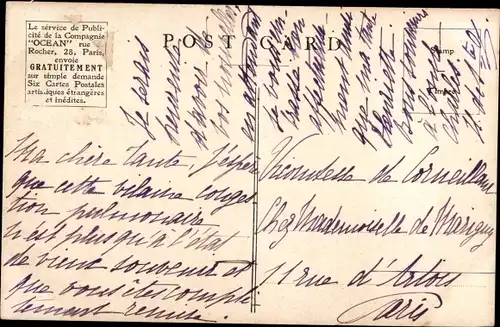 Le service de Publi-
cité de la Compagnie
"OCEAN" rue
Rocher, 28, Paris,
envoie
GRATUITEMENT
sur simple demande
Six Cartes Postales
artistiques étrangères
et inédites.
POST CARD
Stamp
Timbre
Ma chère Tante, J'espère
que cette vilaine conges
tion pulmonaire
n'est plus qu'à l'état
de vieux souvenir et
que vous êtes complè
tement remise.
Je serais
heureuse
d'avoir
de vos
je vous em
brasse bien
ainsi
que ma tante
Henriette
Vicomtesse de Corneillan
Chez Mademoiselle de Marigny
11 rue d'Artois
Paris